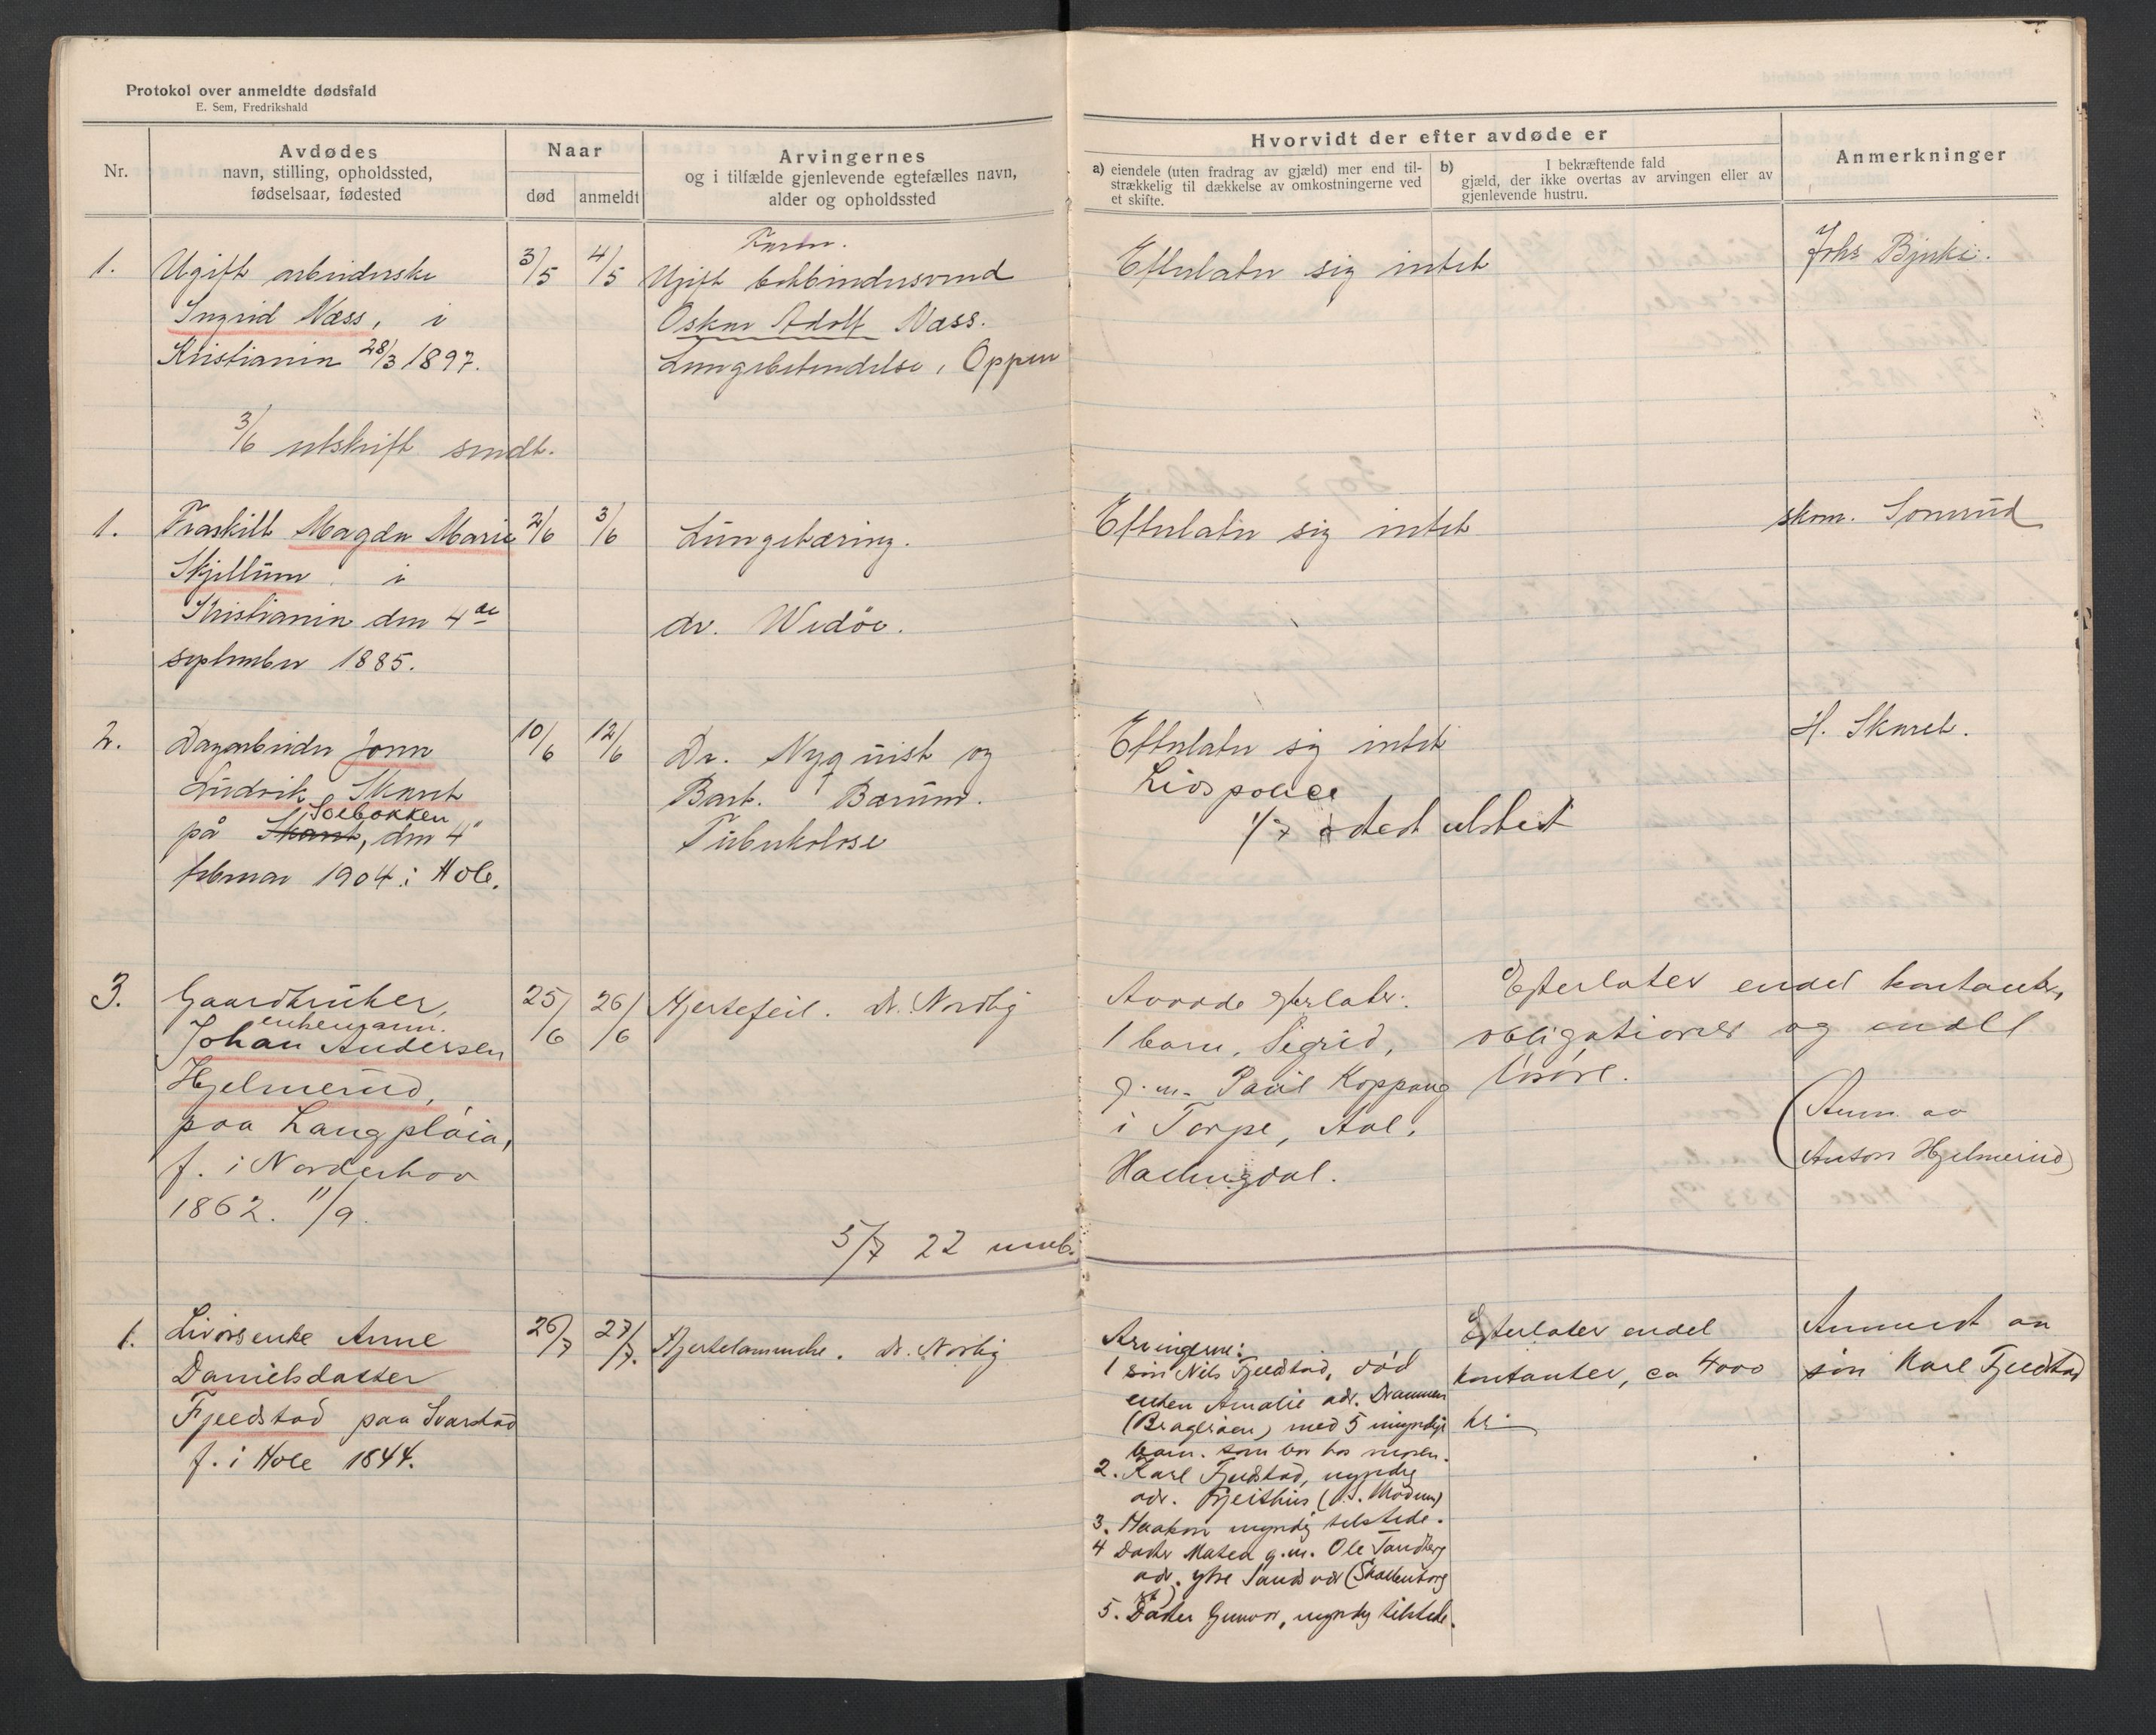 Protokol over anmeldte dødsfald
E. Sem, Fredrikshald
Nr.
Avdødes
navn, stilling, opholdssted,
fødselsaar, fødested
Naar
død
anmeldt
Arvingernes
og i tilfælde gjenlevende egtefælles navn,
alder og opholdssted
Hvorvidt der efter avdøde er
a) eiendele (uten fradrag av gjæld) mer end til-
strækkelig til dækkelse av omkostningerne ved
et skifte.
b) I bekræftende fald
gjæld, der ikke overtas av arvingen eller av
gjenlevende hustru.
Anmerkninger
1.
Ugift arbeiderske
Ingrid Næss, i
Kristiania 28/3 1897.
3/5
4/5
Faren.
Ugift bokbindersvend
Oskar Adolf Næss.
Lungebetendelse, Oppen
Efterlater sig intet
Johs Bjerke.
3/6 utskrift sendt.
1.
Fraskilt Magda Marie
Skjellum i
Kristiania den 4de
september 1885.
2/6
3/6
Lungetæring.
dr. Wedöe.
Efterlater sig intet
skom. Sonerud
2.
Dagarbeider Jonn
Ludvik Skaret
Solbakken
på Skaret, den 4
februar 1904 i Hole.
10/6
12/6
Dr. Nyquist og
Bart. Bærum.
Tuberkolose
Efterlater sig intet
Livspolice
1/7 sted utsted
H. Skaret.
3.
Gaardbruker,
enkemann.
Johan Andersen
Hjelmerud,
paa Langpløia,
f. i Norderhov
1862. 11/9.
25/6
26/6
Hjertefeil. dr. Nordlig
Avdøde efterlater:
1 barn, Sigrid,
g.m. Paul Koppang
i Torpe, Aal,
Hallingdal.
Efterlater endel kontanter,
obligationer og endel
løsøre.
(Anm. av
Anton Hjelmerud)
5/7 22 umb.
1.
Livørsenke Anne
Danielsdatter
Fjeldstad paa Svarstad
f. i Hole 1844.
26/7
27/7.
Hjertelammelse. dr. Nordlig
Arvingerne:
1 søn Nils Fjeldstad, død
enken Amalie adr. Drammen
(Bragerøen) med 5 umyndige
barn. som bor hos moren.
2. Karl Fjeldstad, myndig
adr. Gjeithus (V.S. Modum)
3. Haakon myndig tilstede.
4 Datter Matea g.m. Ole Tandberg
adr. ytre Sandsvær (Skollenborg
st)
5. Datter Gunvor, myndig tilstede.
Efterlater endel
kontanter, ca 4000
kr.
Anmeldt av
søn Karl Fjeldstad